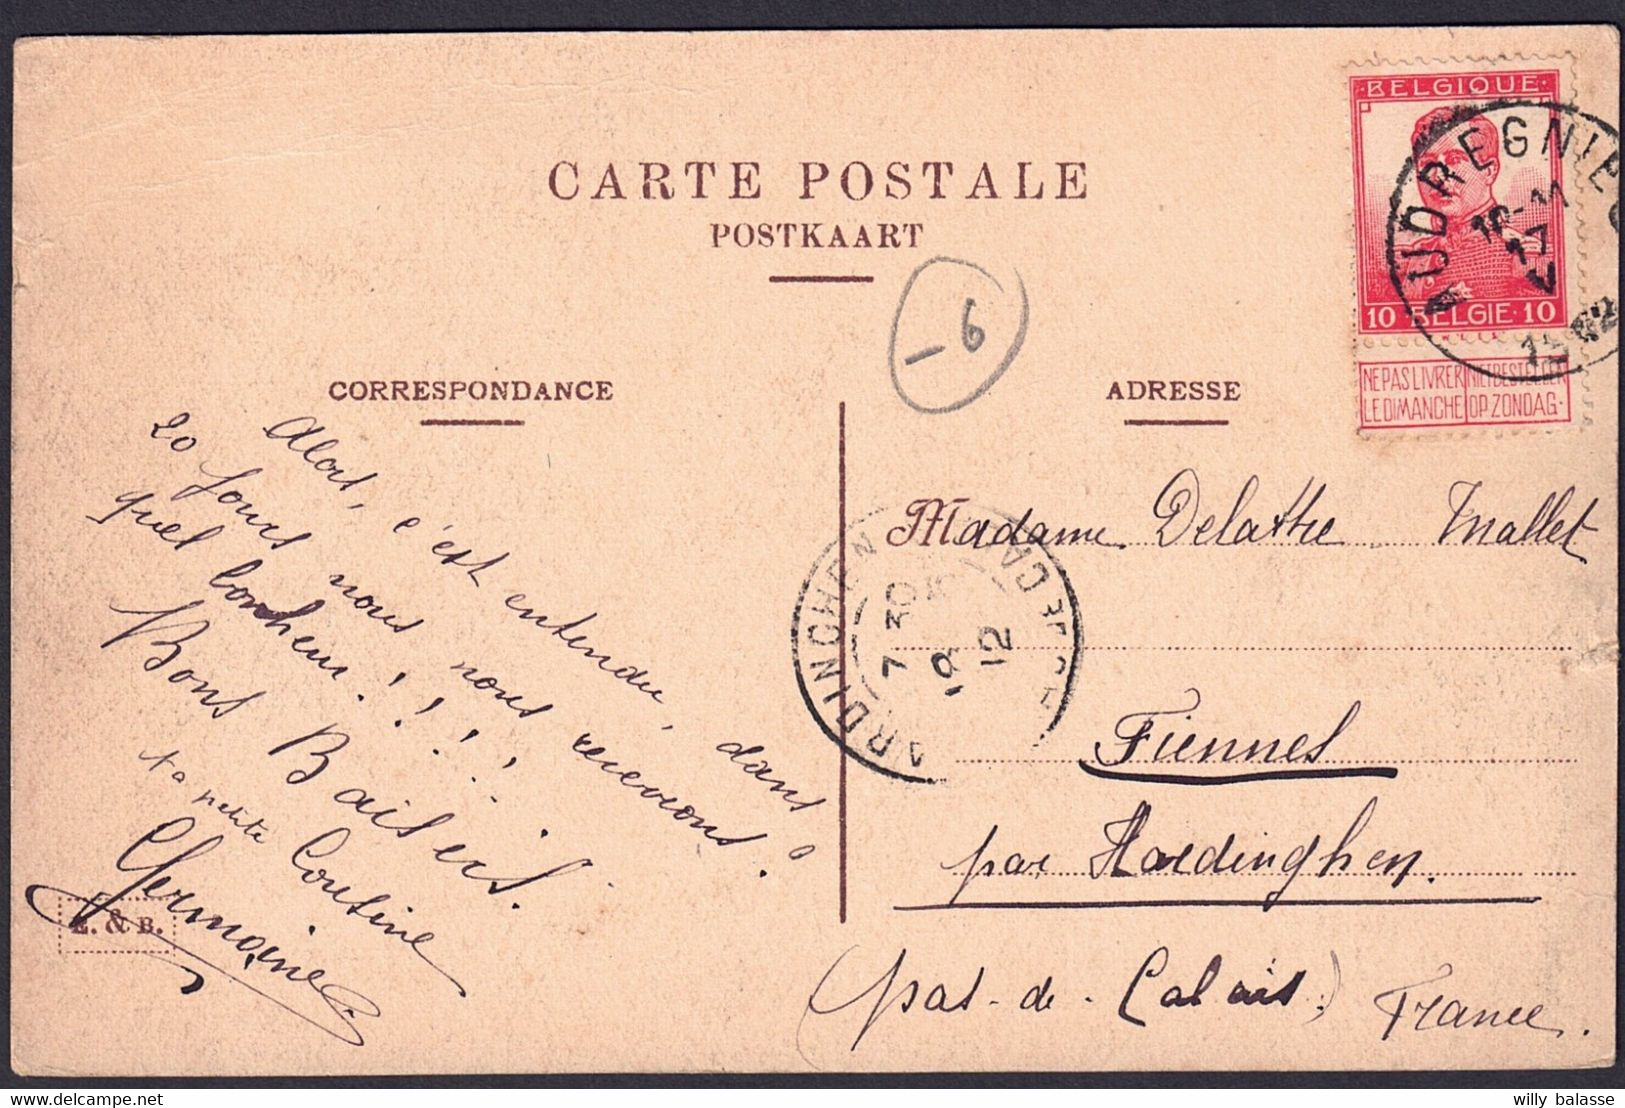 CARTE POSTALE
POSTKAART
CORRESPONDANCE
ADRESSE
BELGIQUE
10 BELGIE 10
NE PAS LIVRER NIET BESTELLEN
LE DIMANCHE OP ZONDAG.
AUDREGNIE
10-11
17
V
1912
- 6
Alors, c'est entendu, dans
20 jours nous nous recevrons?
quel bonheur!!!!!
Bons Baisers.
ta petite Cousine
Germaine
E. & B.
Madame Delattre Mallet
Fiennes
par Hardinghen.
(pas-de-Calais.) France.
HARDINGHEN
PAS DE CALAIS
7 30
19
12
willy balasse